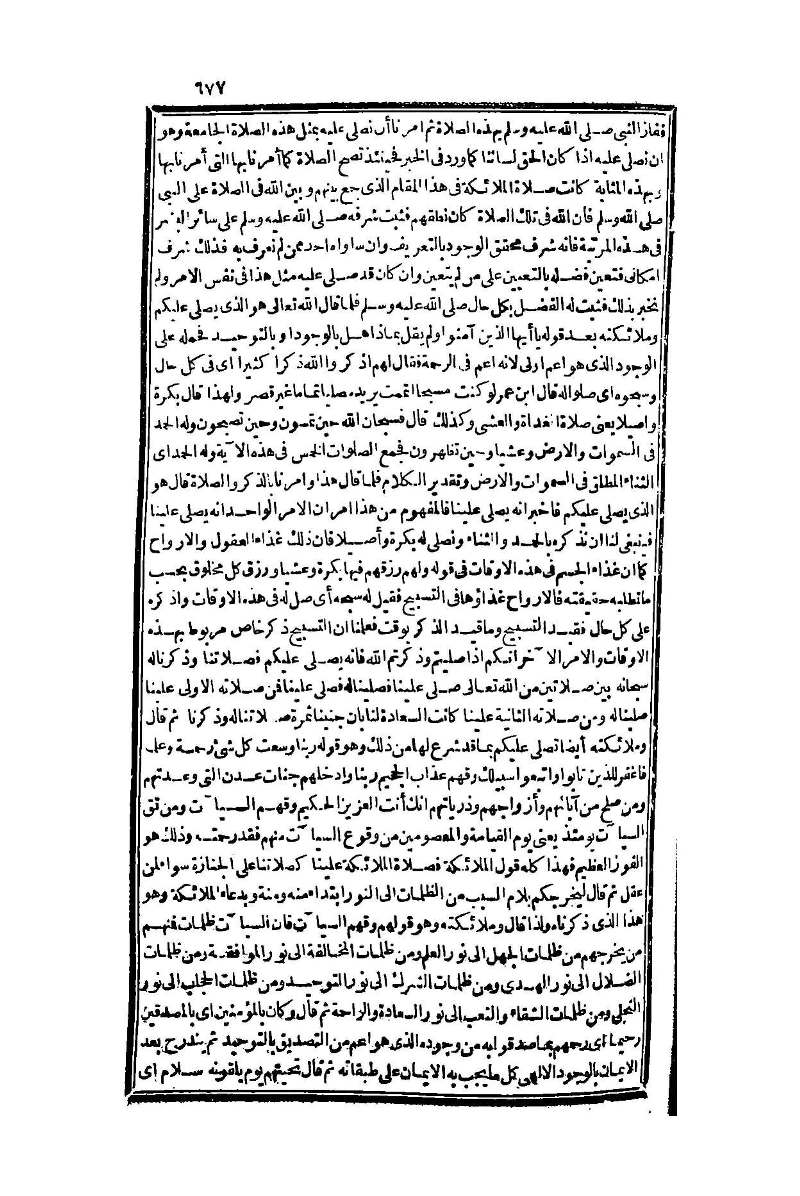 ٦٧٧
ففاز النبي صلى الله عليه وسلم بهذه الصلاة ثم امرنا أن نصلى عليه بمثل هذه الصلاة الجامعة وهو
ان نصلى عليه اذا كان الحق لساننا كما ورد فى الخبر فحينئذ تصح الصلاة كما أمرنا بها التى أمرنا بها
وبهذه المثابة كانت صلاة الملائكة فى هذا المقام الذى جمع بينهم وبين الله فى الصلاة على النبى
صلى الله وسلم فان الله فى تلك الصلاة كان نطقهم فثبت شرفه صلى الله عليه وسلم على سائر البشر
فى هذه المرتبة فانه شرف محقق الوجود بالتعريف وان ساواه احد ممن لم نعرف به فذلك شرف
امكانى فتعين فضله بالتعيين على من لم يتعين وان كان قد صلى عليه مثل هذا فى نفس الامر ولم
نخبر بذلك فثبت له الفضل بكل حال صلى الله عليه وسلم فلما قال الله تعالى هو الذى يصلى عليكم
وملائكته بعد قوله يا أيها الذين آمنوا ولم يقل بماذا هل بالوجود او بالتوحيد فحمله على
الوجود الذى هو اعم اولى لانه اعم فى الرحمة فقال لهم اذكروا الله ذكرا كثيرا اى فى كل حال
وسبحوه اى صلوا له قال ابن عمر لو كنت مسبحا اتممت يريد مصليا تماما غير قصر ولهذا قال بكرة
واصيلا يعنى صلاة الغداة والعشى وكذلك قال فسبحان الله حين تمسون وحين تصبحون وله الحمد
فى السموات والارض وعشيا وحين تظهرون فجمع الصلوات الخمس فى هذه الآية وله الحمد اى
الثناء المطلق فى السموات والارض وتقدير الكلام فلما قال هذا وامرنا بالذكر والصلاة قال هو
الذى يصلى عليكم فاخبر انه يصلى علينا فالمفهوم من هذا امران الامر الواحد انه يصلى علينا
فينبغى لنا ان نذكره بالحمد والثناء ونصلى له بكرة وأصيلا فان ذلك غذاء العقول والارواح
كما ان غذاء الجسم فى هذه الاوقات فى قوله ولهم رزقهم فيها بكرة وعشيا ورزق كل مخلوق بحسب
ما تطلبه حقيقته فالارواح غذاؤها فى التسبيح فقيل له سبحه أى صل له فى هذه الاوقات واذكره
على كل حال فقيد التسبيح وما قيد الذكر بوقت فعلمنا ان التسبيح ذكر خاص مربوط بهذه
الاوقات والامر الآخر انكم اذا صليتم وذكرتم الله فانه يصلى عليكم فصلاتنا وذكرنا له
سبحانه بين صلاتين من الله تعالى صلى علينا فصلينا له فصلى علينا فمن صلاته الاولى علينا
صلينا له ومن صلاته الثانية علينا كانت السعادة لنا بان جنينا ثمرة صلاتنا له وذكرنا ثم قال
وملائكته أيضا تصلى عليكم بما قد شرع لها من ذلك وهو قوله ربنا وسعت كل شئ رحمة وعلما
فاغفر للذين تابوا واتبعوا سبيلك وقهم عذاب الجحيم ربنا وادخلهم جنات عدن التى وعدتهم
ومن صلح من آبائهم وأزواجهم وذرياتهم انك أنت العزيز الحكيم وقهم السيآت ومن تق
السيآت يومئذ يعنى يوم القيامة والمعصومين من وقوع السيآت منهم فقد رحمته وذلك هو
الفوز العظيم فهذا كله قول الملائكة فصلاة الملائكة علينا كصلاتنا على الجنازة سواء لمن
عقل ثم قال ليخرجكم بلام السبب من الظلمات الى النور ابتداء منه ومنة وبدعاء الملائكة وهو
هذا الذى ذكرناه ولذا قال وملائكته وهو قولهم وقهم السيآت فان السيآت ظلمات فمنهم
من يخرجهم من ظلمات الجهل الى نور العلم ومن ظلمات المخالفة الى نور الموافقة ومن ظلمات
الضلال الى نور الهدى ومن ظلمات الشرك الى نور التوحيد ومن ظلمات الحجاب الى نور
التجلى ومن ظلمات الشقاء والتعب الى نور السعادة والراحة ثم قال وكان بالمؤمنين اى بالمصدقين
رحيما اى رحمهم بما صدقوا به من وجوده الذى هو اعم من التصديق بالتوحيد ثم يندرج بعد
الايمان بالوجود الالهى كل ما يجب به الايمان على طبقاته ثم قال تحيتهم يوم يلقونه سلام اى